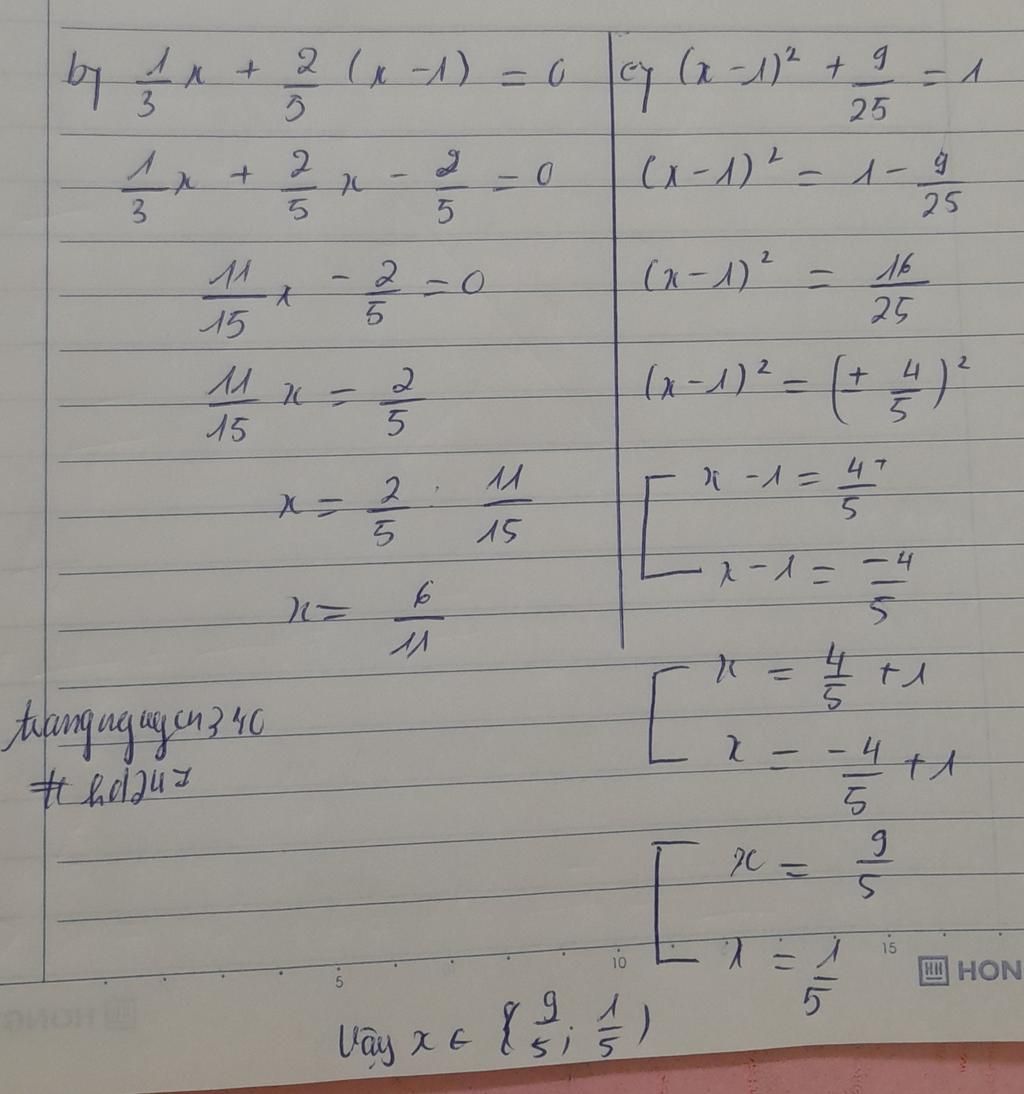 b) 1/3 x + 2/5 (x - 1) = 0
1/3 x + 2/5 x - 2/5 = 0
11/15 x - 2/5 = 0
11/15 x = 2/5
x = 2/5 . 11/15
x = 6/11
c) (x - 1)² + 9/25 = 1
(x - 1)² = 1 - 9/25
(x - 1)² = 16/25
(x - 1)² = (± 4/5)²
[ x - 1 = 4/5
x - 1 = -4/5
[ x = 4/5 + 1
x = -4/5 + 1
[ x = 9/5
x = 1/5
Vậy x ∈ { 9/5 ; 1/5 )
trangnguyen340
# hd247
5 10 15
HON